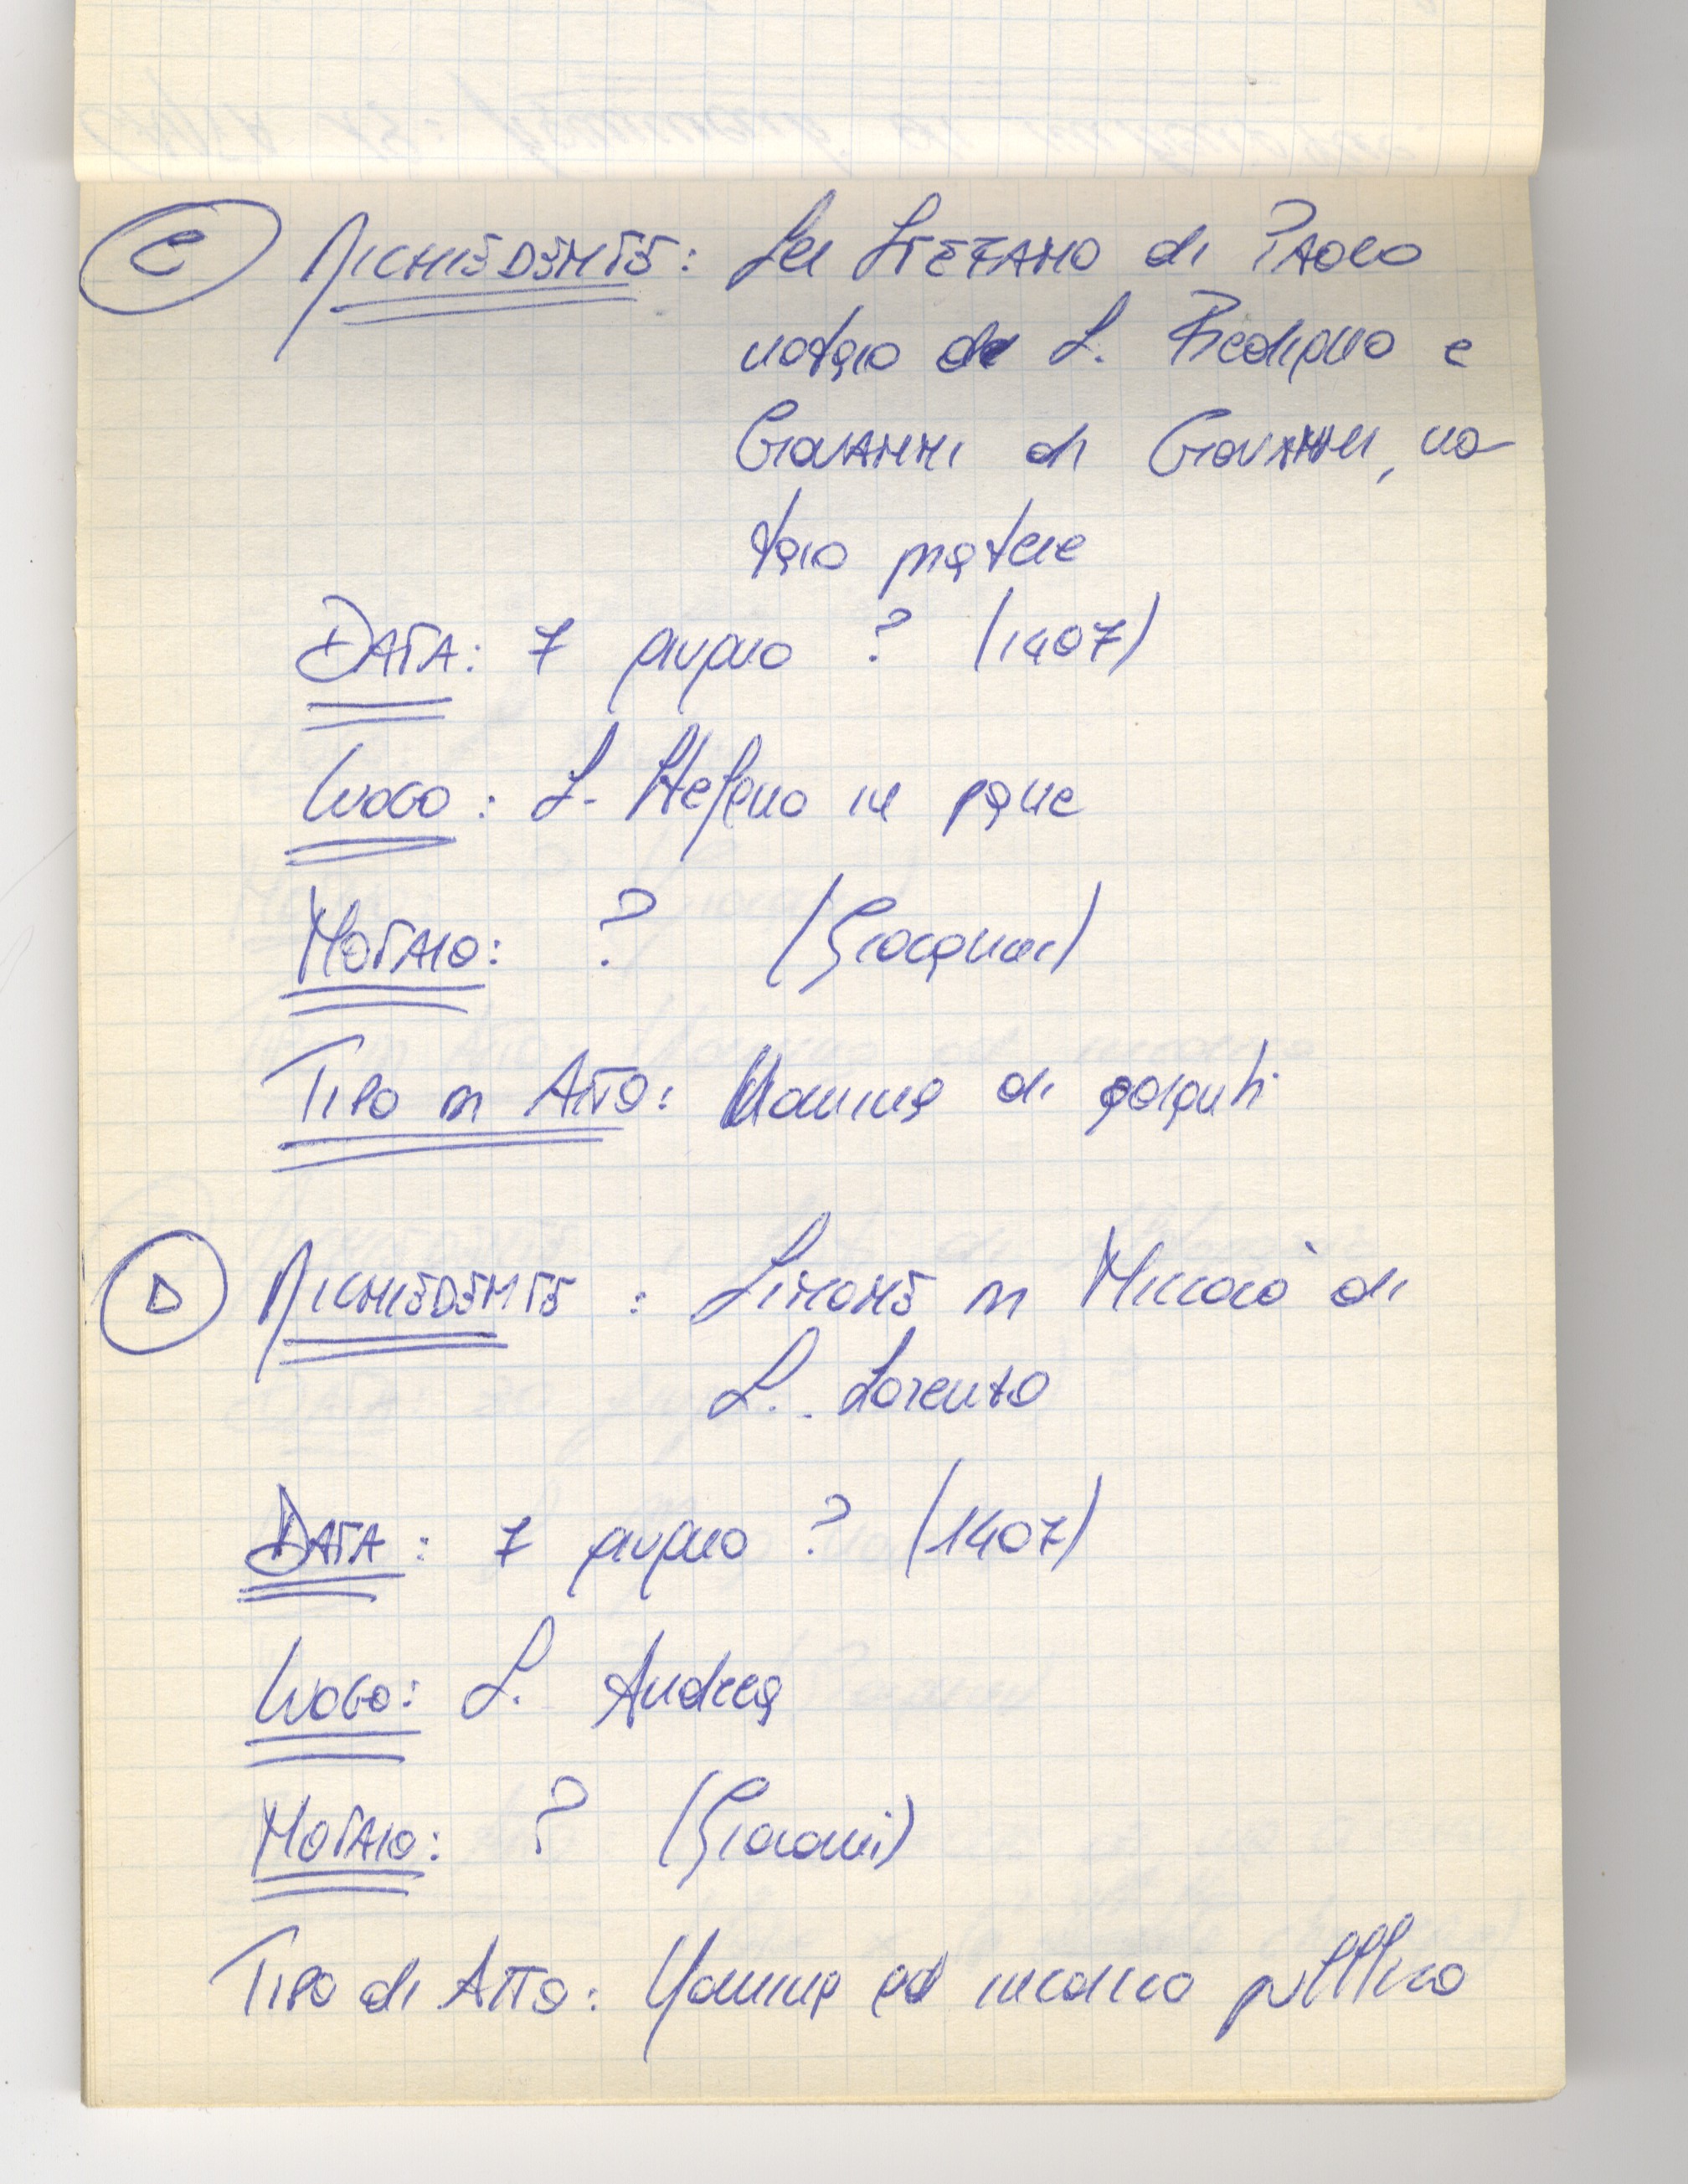 C RICHIEDENTE: Ser STEFANO di PAOLO
notaio de S. Frediano e
GIOVANNI di GIOVANNI, no
taio pratese
DATA: 7 giugno ? (1407)
LUOGO: S. Stefano in pane
NOTAIO: ? (Giovanni)
TIPO DI ATTO: Nomina di
D RICHIEDENTE: SIMONE DI Niccolò di
S. Lorenzo
DATA: 7 giugno ? (1407)
LUOGO: S. Andrea
NOTAIO: ? (Giovanni)
TIPO di ATTO: Nomina ad incarico pubblico